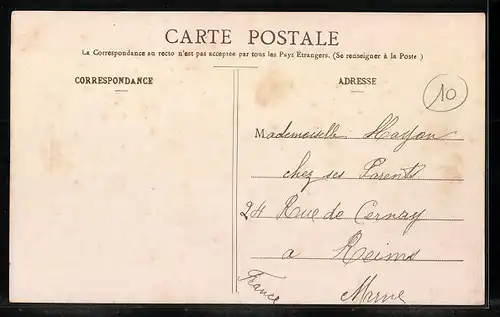 CARTE POSTALE
La Correspondance au recto n'est pas acceptée par tous les Pays Étrangers. (Se renseigner à la Poste)
CORRESPONDANCE
ADRESSE
10
Mademoiselle Hayon
chez ses Parents
24 Rue de Cernay
a Reims
Marne
France